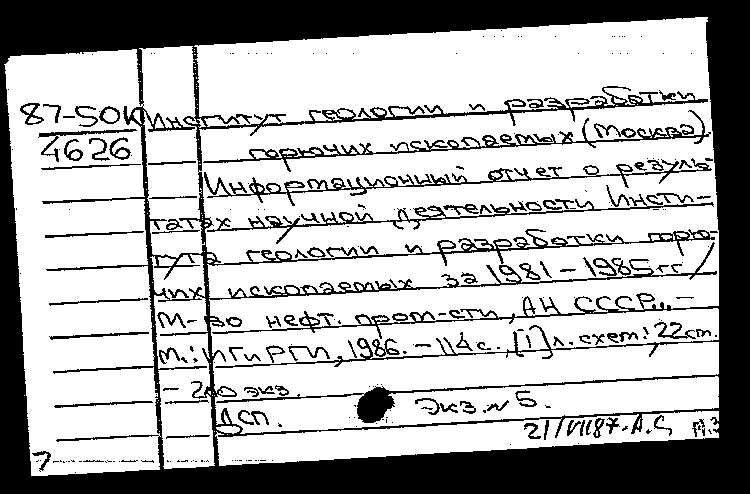 87-50К Институт геологии и разработки
4626 горючих ископаемых (Москва).
Информационный отчет о резуль-
татах научной деятельности Инсти-
тута геологии и разработки горю-
чих ископаемых за 1981-1985 гг /
М-во нефт. пром-сти, АН СССР. -
М.: ИГиРГИ, 1986. - 114 с., [1] л. схем; 22 см.
- 200 экз.
ДСП. Экз. №5.
21/VII87. А.С,
7